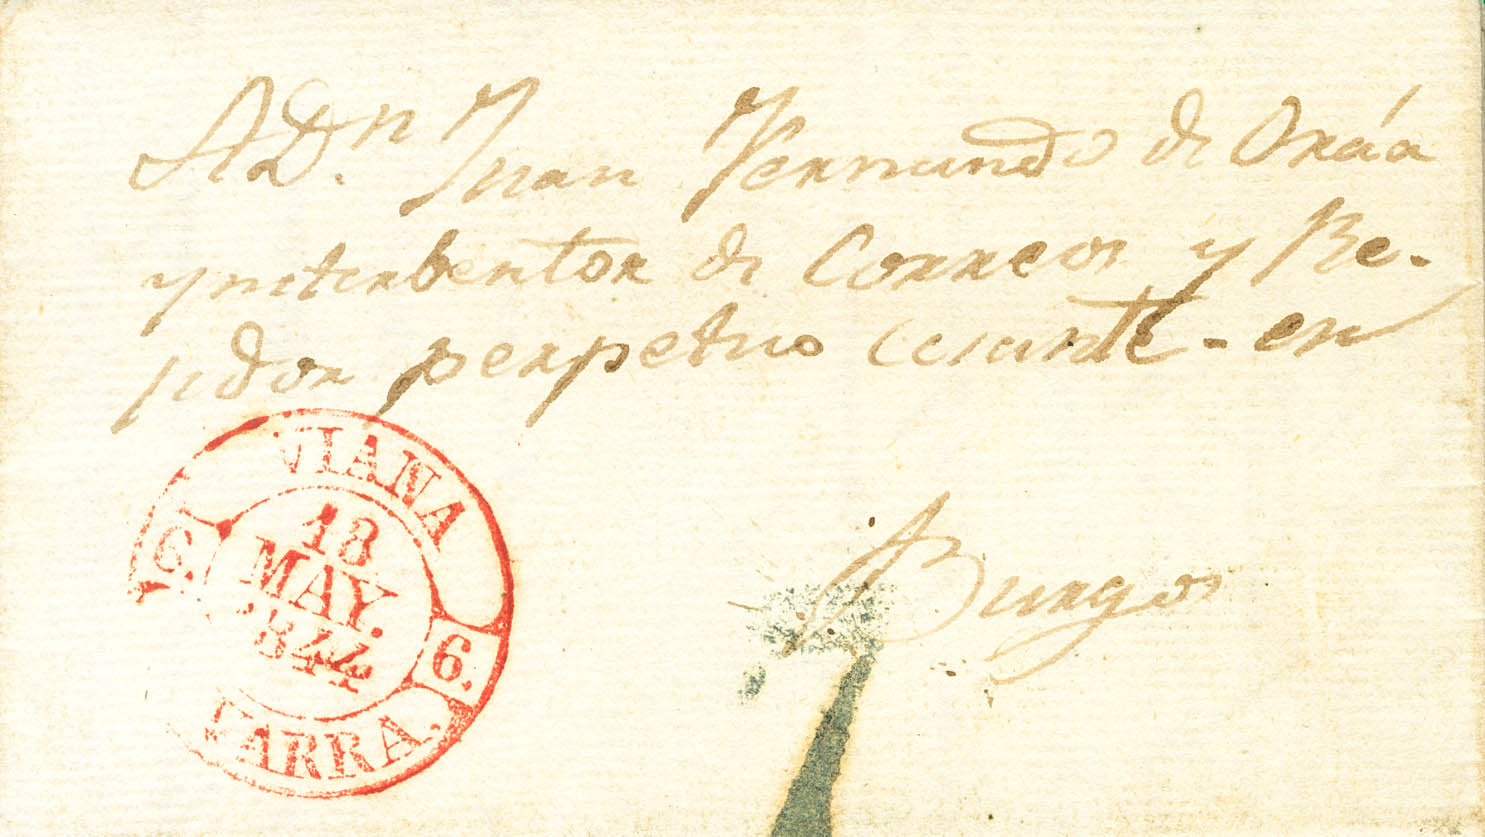 A Dn. Juan Fernando de Oráa
ynterbentor de Correos y Re-
jidor perpetuo cesante - en
Burgos
VIANA
18
MAY.
1844
6.
6.
VARRA.